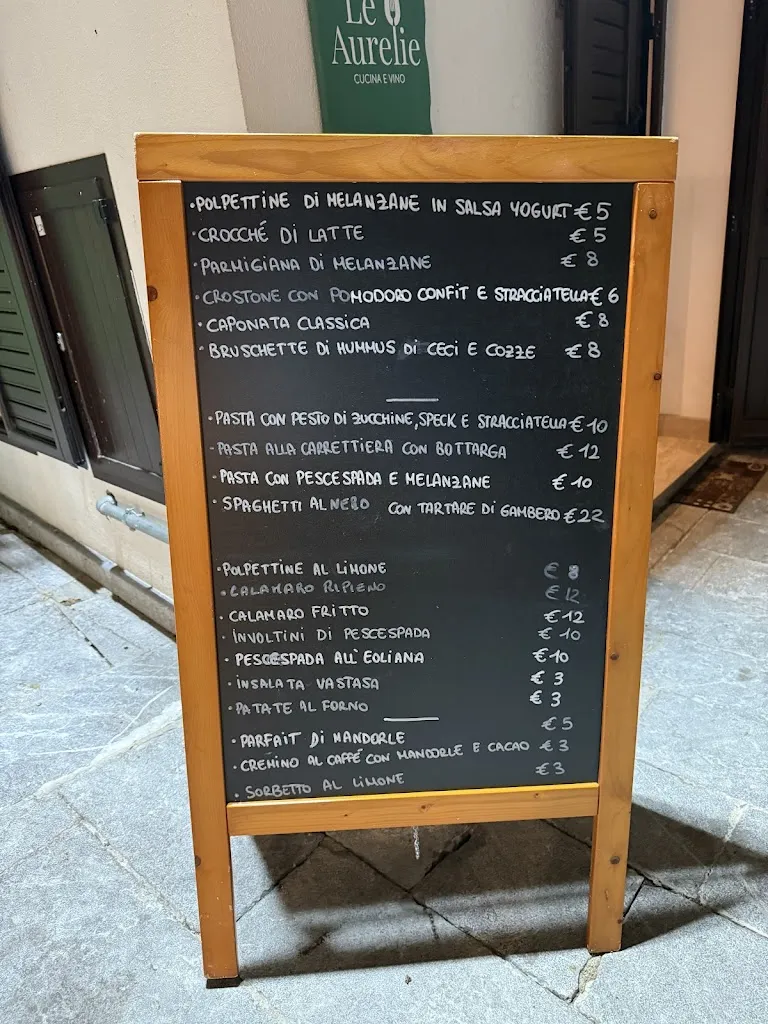 Le
Aurelie
CUCINA E VINO
• POLPETTINE DI MELANZANE IN SALSA YOGURT € 5
• CROCCHÉ DI LATTE € 5
• PARMIGIANA DI MELANZANE € 8
• CROSTONE CON POMODORO CONFIT E STRACCIATELLA € 6
• CAPONATA CLASSICA € 8
• BRUSCHETTE DI HUMMUS DI CECI E COZZE € 8
• PASTA CON PESTO DI ZUCCHINE, SPECK E STRACCIATELLA € 10
• PASTA ALLA CARRETTIERA CON BOTTARGA € 12
• PASTA CON PESCESPADA E MELANZANE € 10
• SPAGHETTI AL NERO CON TARTARE DI GAMBERO € 22
• POLPETTINE AL LIMONE € 8
• CALAMARO RIPIENO € 12
• CALAMARO FRITTO € 12
• INVOLTINI DI PESCESPADA € 10
• PESCESPADA ALL'EOLIANA € 10
• INSALATA VASTASA € 3
• PATATE AL FORNO € 3
• PARFAIT DI MANDORLE € 5
• CREMINO AL CAFFÉ CON MANDORLE E CACAO € 3
• SORBETTO AL LIMONE € 3